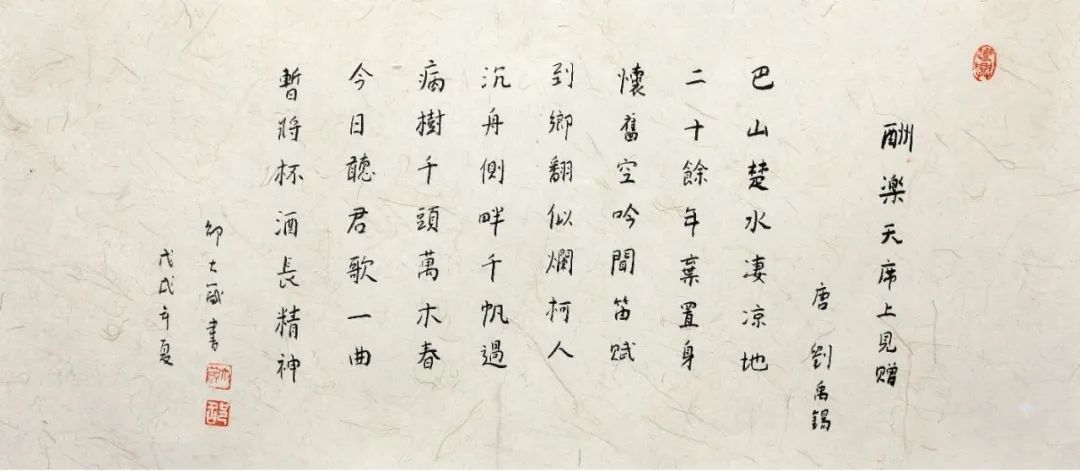 酬楽天席上見贈
唐 劉禹錫
巴山楚水凄凉地
二十餘年棄置身
懷舊空吟聞笛賦
到鄉翻似爛柯人
沉舟側畔千帆過
病樹千頭萬木春
今日聽君歌一曲
暫將杯酒長精神
邵大箴書
戊戌年夏